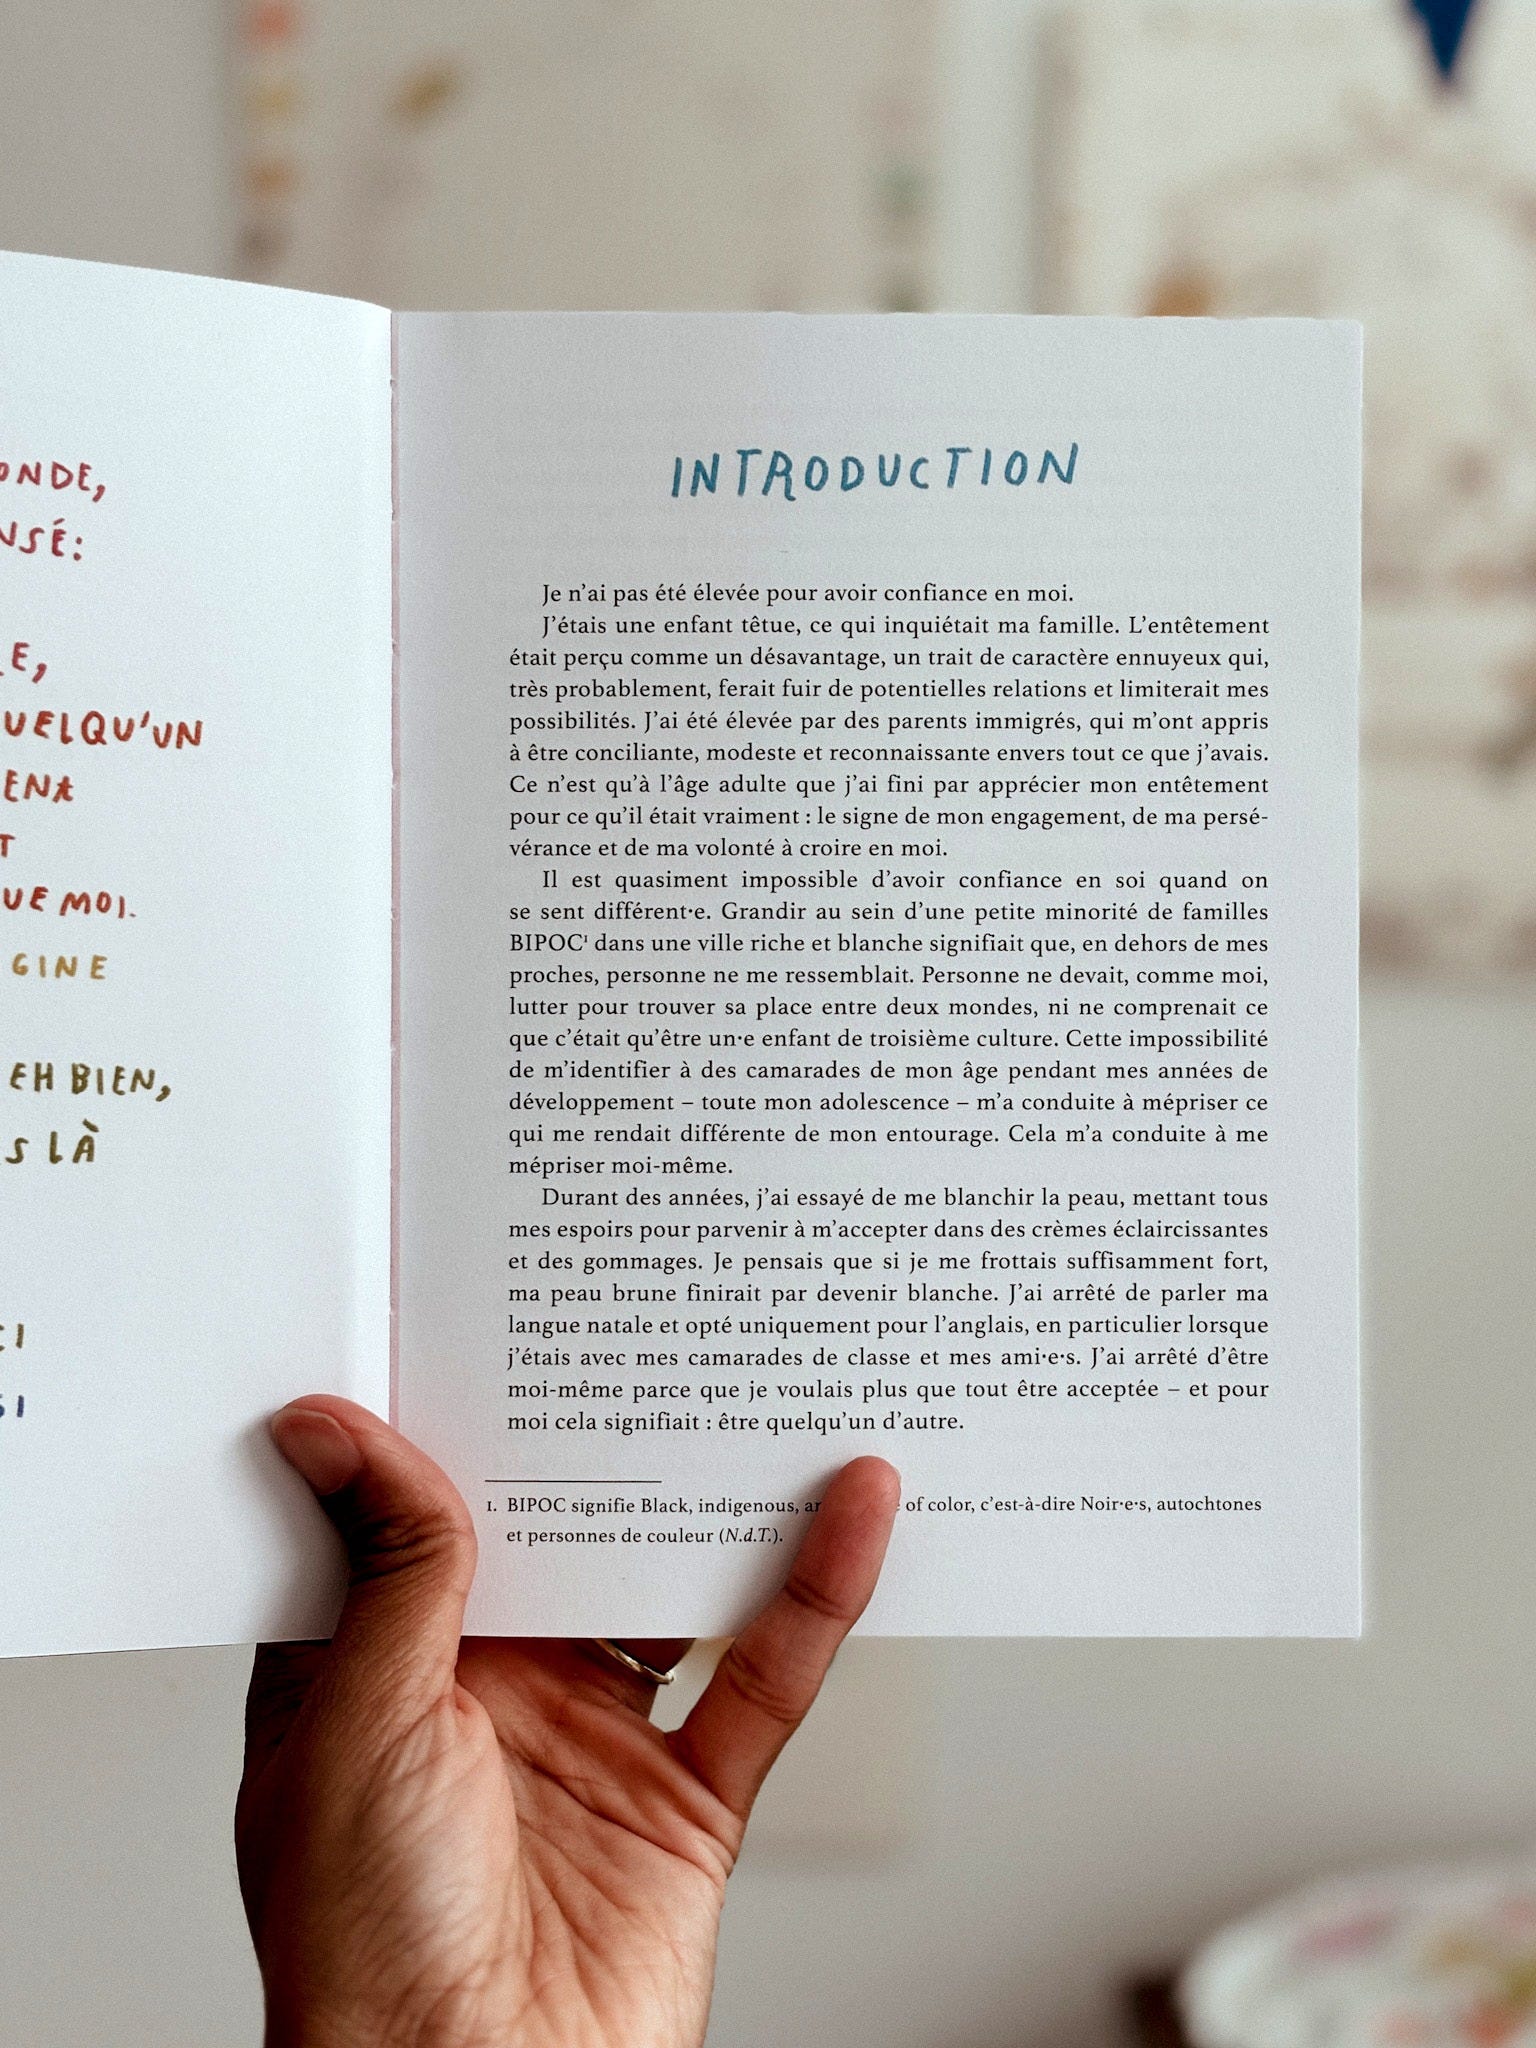 QUELQU'UN
MOI.
EH BIEN,
LÀ
INTRODUCTION
Je n'ai pas été élevée pour avoir confiance en moi.
J'étais une enfant têtue, ce qui inquiétait ma famille. L'entêtement
était perçu comme un désavantage, un trait de caractère ennuyeux qui,
très probablement, ferait fuir de potentielles relations et limiterait mes
possibilités. J'ai été élevée par des parents immigrés, qui m'ont appris
à être conciliante, modeste et reconnaissante envers tout ce que j'avais.
Ce n'est qu'à l'âge adulte que j'ai fini par apprécier mon entêtement
pour ce qu'il était vraiment : le signe de mon engagement, de ma persé-
vérance et de ma volonté à croire en moi.
Il est quasiment impossible d'avoir confiance en soi quand on
se sent différent·e. Grandir au sein d'une petite minorité de familles
BIPOC¹ dans une ville riche et blanche signifiait que, en dehors de mes
proches, personne ne me ressemblait. Personne ne devait, comme moi,
lutter pour trouver sa place entre deux mondes, ni ne comprenait ce
que c'était qu'être un·e enfant de troisième culture. Cette impossibilité
de m'identifier à des camarades de mon âge pendant mes années de
développement – toute mon adolescence – m'a conduite à mépriser ce
qui me rendait différente de mon entourage. Cela m'a conduite à me
mépriser moi-même.
Durant des années, j'ai essayé de me blanchir la peau, mettant tous
mes espoirs pour parvenir à m'accepter dans des crèmes éclaircissantes
et des gommages. Je pensais que si je me frottais suffisamment fort,
ma peau brune finirait par devenir blanche. J'ai arrêté de parler ma
langue natale et opté uniquement pour l'anglais, en particulier lorsque
j'étais avec mes camarades de classe et mes ami·e·s. J'ai arrêté d'être
moi-même parce que je voulais plus que tout être acceptée – et pour
moi cela signifiait : être quelqu'un d'autre.
1. BIPOC signifie Black, indigenous, of color, c'est-à-dire Noir·e·s, autochtones
et personnes de couleur (N.d.T.).